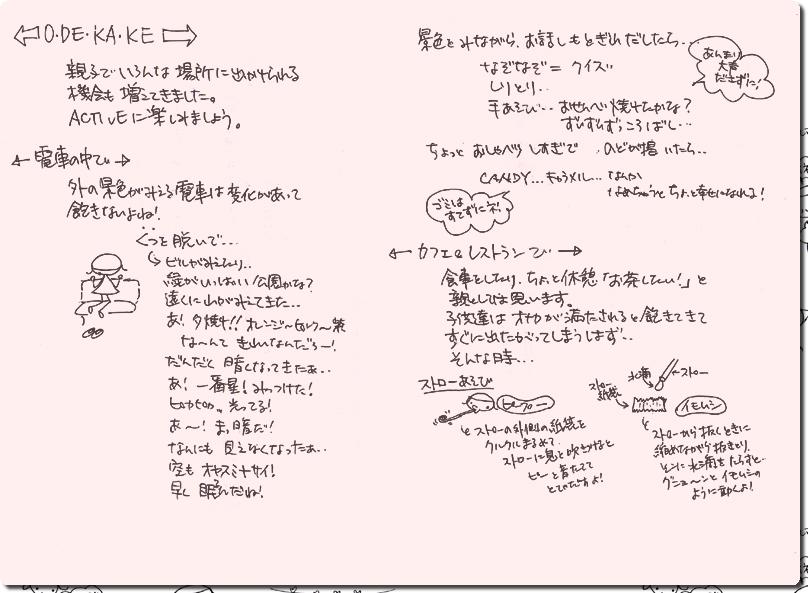 O・DE・KA・KE
親子でいろんな場所に出かけられる
機会も増えてきました。
ACTIVEに楽しみましょう。
電車の中で
外の景色がみえる電車は変化があって
飽きないよね!
くつを脱いで…
ビルがみえたり…
緑がいっぱい公園かな?
遠くに山がみえてきた…
あ!夕焼け!!オレンジ〜ピンク〜紫
な〜んてきれいなんだろー!
だんだん暗くなってきたぁ…
あ!一番星!みっつけた!
ピカピカッ光ってる!
あ〜!まっ暗だ!
なんにも見えなくなったぁ…
空もオヤスミナサイ!
早く眠るんだね!
景色をみながら、お話しもとぎれだしたら…
あんまり
大声
ださずに!
なぞなぞ=クイズ
しりとり…
手あそび…おせんべい焼けたかな?
ずいずいずっころばし…
ちょっとおしゃべりしすぎで、のどが渇いたら…
CANDY…キャラメル…なんか
なめちゃうとちょっと幸せになれる!
ゴミは
すてずにネ!
カフェ&レストランで
食事をしたり、ちょっと休憩「お茶したい!」と
親としては思います。
子供達はオナカが満たされると飽きてきて
すぐに出たがってしまうはず…
そんな時…
ストローあそび
ピープー
ストローの外側の紙袋を
クルクルまるめて
ストローに息を吹きこむと
ピーと音たてて
とびだすよ!
水滴
ストロー
ストロー
紙袋
イモムシ
ストローから抜くときに
縮めながら抜きとり
そこに水滴をたらすと…
グニュ〜ンとイモムシの
ように動くよ!